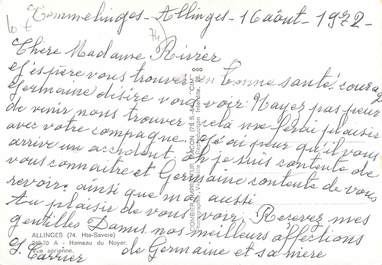 Commelinges - Allinges - 16 août - 1972 -
Chère Madame Rivier
J'espère vous trouver en bonne santé.
Germaine désire vous voir. N'ayez pas peur
de venir nous trouver cela me ferai plaisir
avec votre compagne J'ai peur qu'il vous
arrive un accident. je suis contente de
vous connaître et Germaine contente de vous
revoir. ainsi que moi aussi
Au plaisir de vous voir. Recevez mes
gentilles Dames nos meilleurs affections
de Germaine et sa mère
J. Carrier
ALLINGES (74. Hte-Savoie)
A - Hameau du Noyer
Vue aérienne.